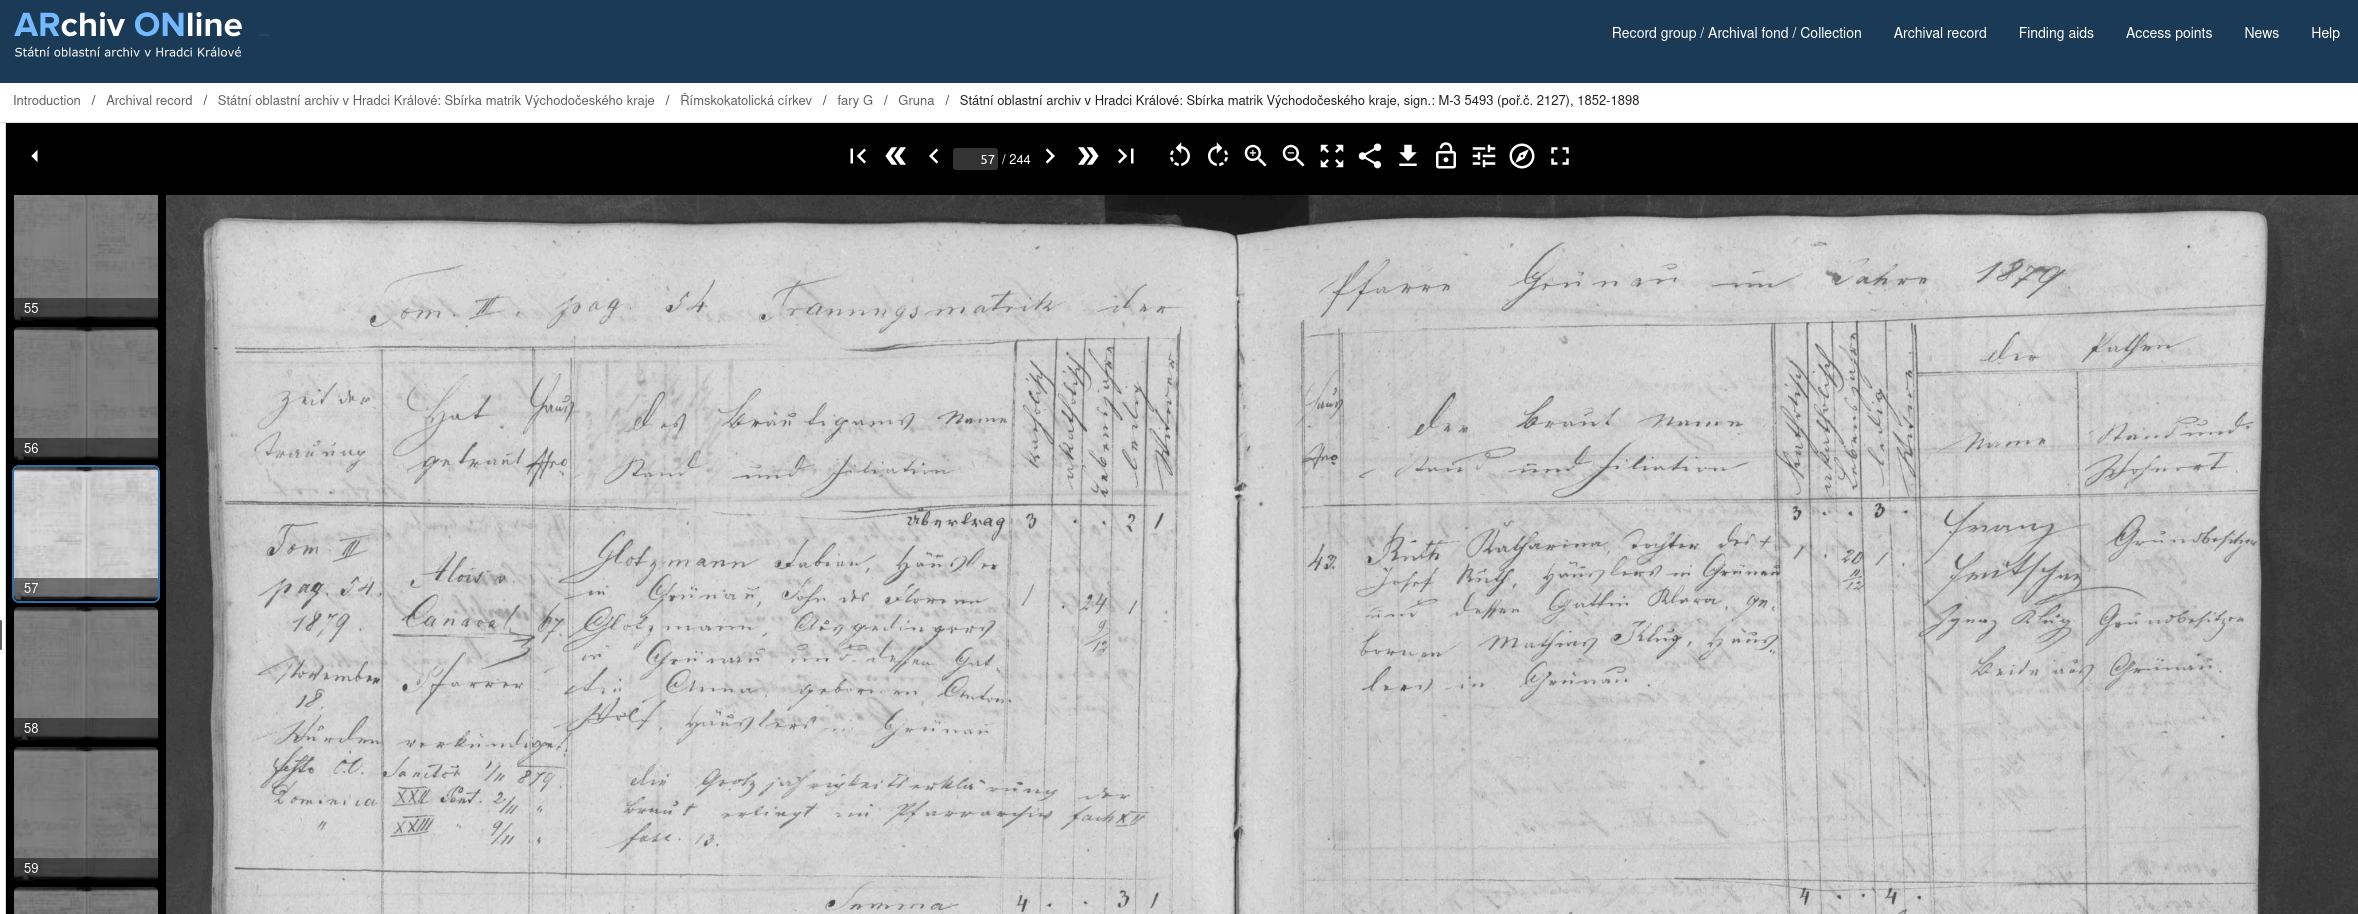 ARchiv ONline
Státní oblastní archiv v Hradci Králové
Record group / Archival fond / Collection
Archival record
Finding aids
Access points
News
Help
Introduction / Archival record / Státní oblastní archiv v Hradci Králové: Sbírka matrik Východočeského kraje / Římskokatolická církev / fary G / Gruna / Státní oblastní archiv v Hradci Králové: Sbírka matrik Východočeského kraje, sign.: M-3 5493 (poř.č. 2127), 1852-1898
57 / 244
55
56
57
58
59
Tom. III. pag. 54 Trauungsmatrik der
Zeit der
Trauung
Hat
getraut
Haus
Nro
Des Bräutigams Name
Stand und Filiation
katholisch
akatholisch
Lebensjahre
ledig
Witwer
Übertrag 3 . . 2 1
Tom. III
pag. 54.
1879.
November
18.
Alois
Canaval
Pfarrer
67.
Glotzmann Fabian, Häusler
in Grünau, Sohn des Florian
Glotzmann, Ausgedingers
in Grünau und dessen Gat-
tin Anna, geborenen Anton
Wolf, Häuslers in Grünau
1 . 24 1 .
9
12
Wurden verkündiget:
Festo O.O. Sanctor 1/11 879.
Dominica XXII Pent. 2/11 "
" XXIII " 9/11 "
Die Großjährigkeitserklärung der
Braut erliegt im Pfarrarchiv Fach XII
fasc. 13.
Summa 4 . . 3 1
Pfarre Grünau im Jahre 1879
Haus
Nro
Der Braut Name
Stand und Filiation
katholisch
akatholisch
Lebensjahre
ledig
Witwe
der Pathen
Name
Stand und
Wohnort
3 . . 3 .
43.
Ruth Katharina, Tochter des +
Josef Ruth, Häuslers in Grünau
und dessen Gattin Klara, ge-
bornen Mathias Klug, Häus-
lers in Grünau.
1 . 20 1 .
11
12
Franz
Fritscher
Grundbesitzer
Ignaz Klug Grundbesitzer
Beide aus Grünau.
4 . . 4 .